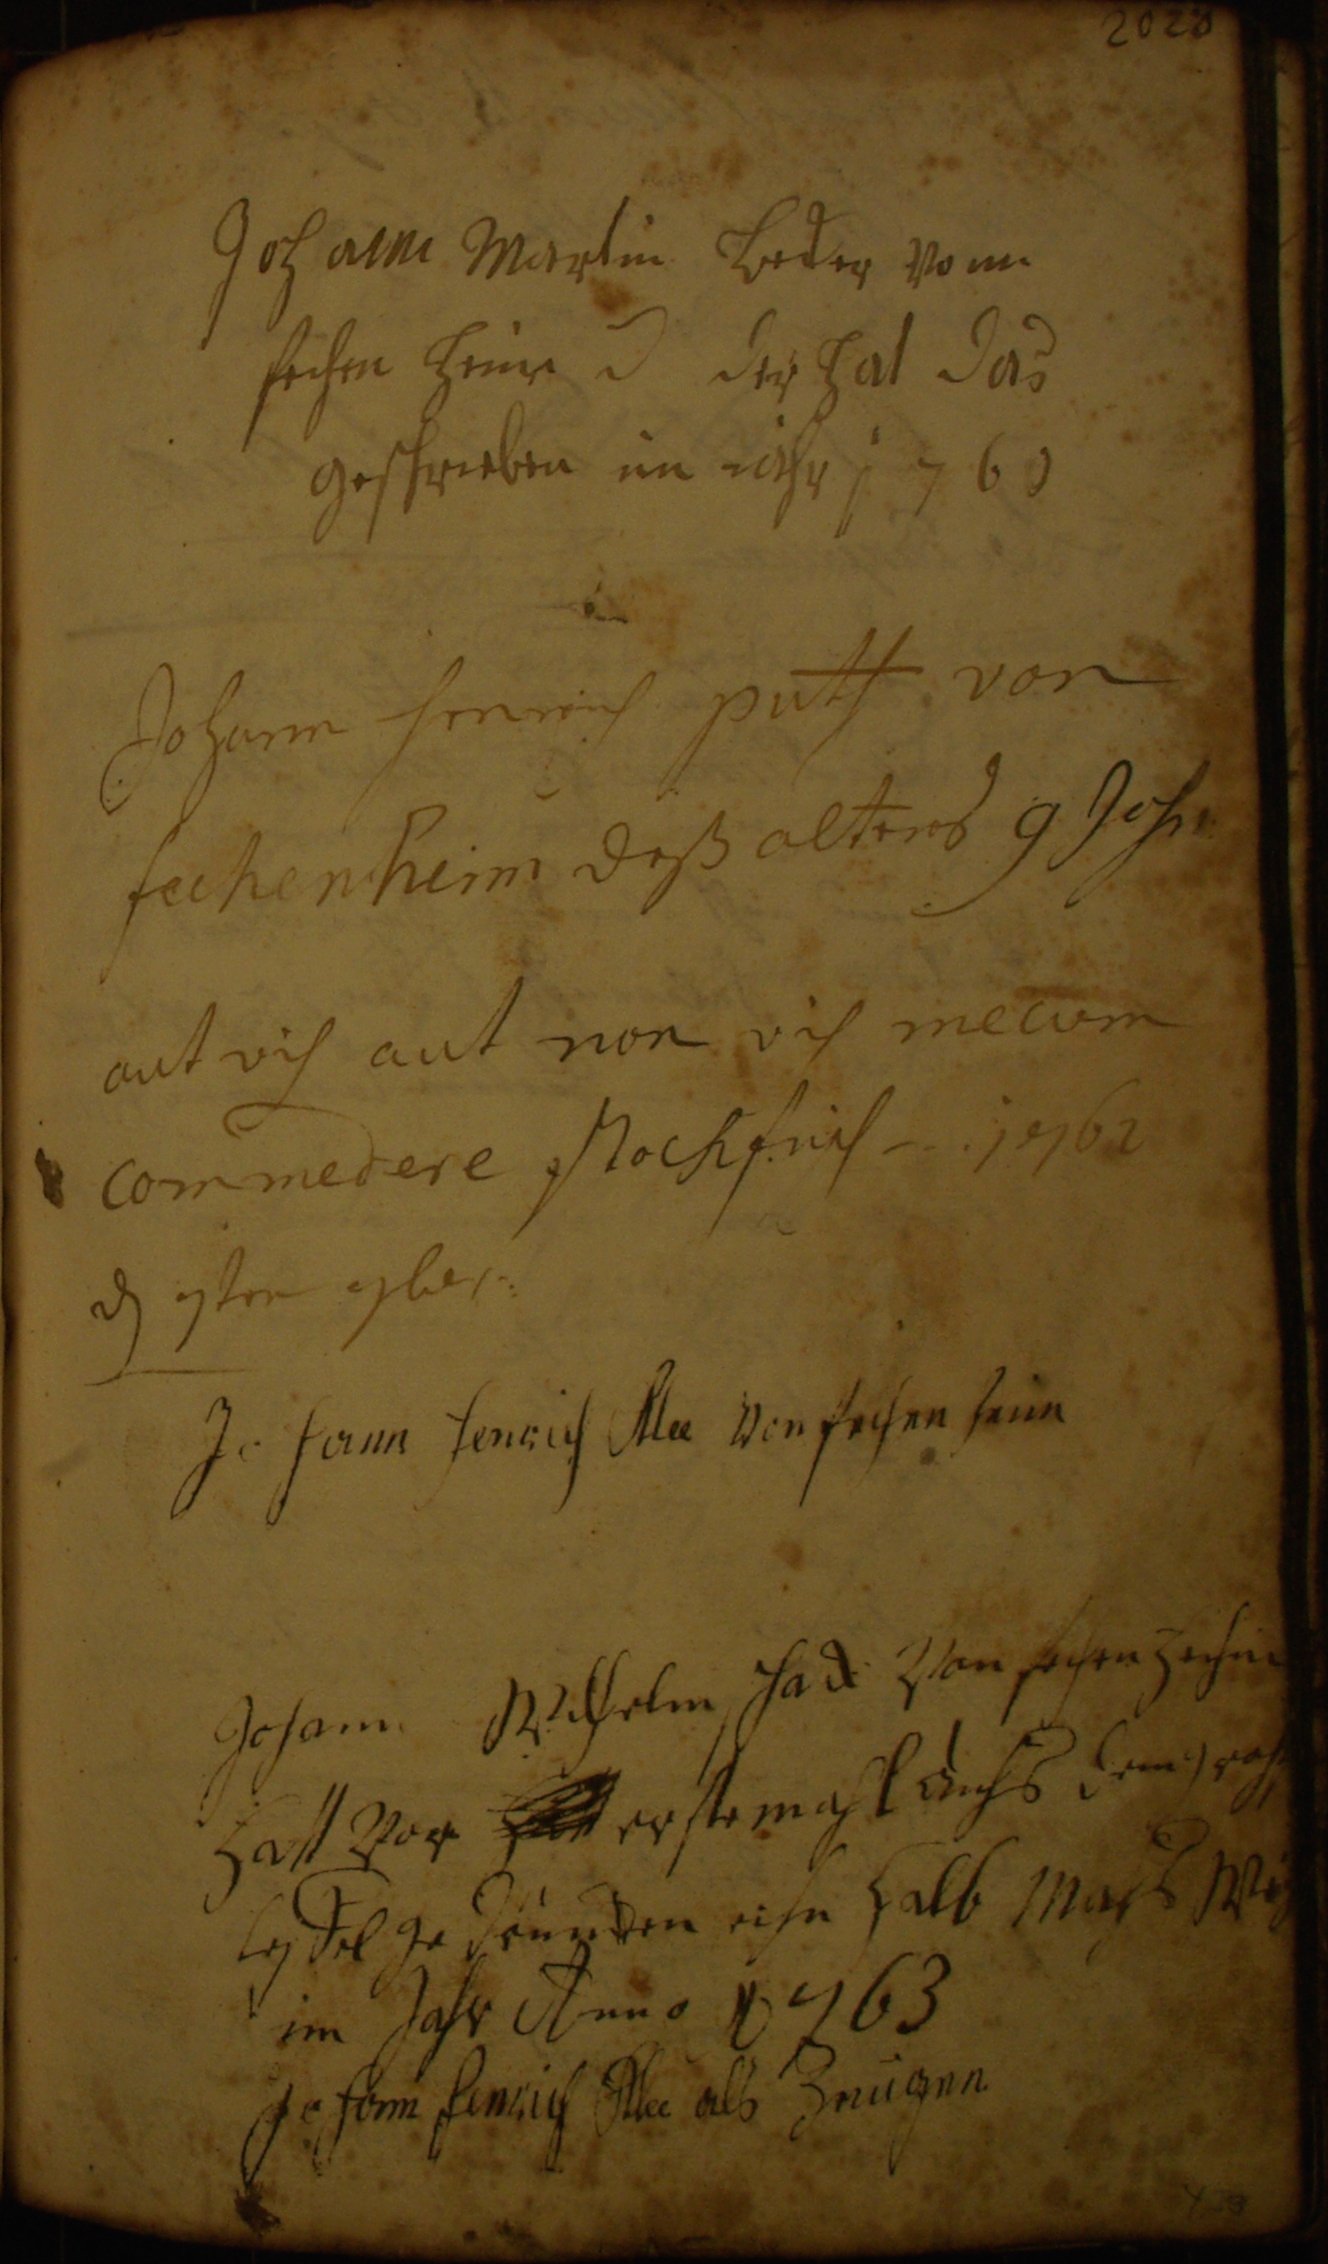 2023
Johann Martin Beder vonn
fechen heim d der hat das
geschrieben im iahr j 760
Johann henrich puth von
fechenheim deß alters 9 Jahr
aut vis aut non vis mecum
commedere stockfisch j762
d 7ten 7ber
Johann henrich Klee von fechen heim
Johann Wilhelm schad Von fechen heim
hatt Vor erste mahl auhs dem
ge drunken eihn halb Mahs
im Jahr Anno 1763
Johann henrich Klee als Zeugen